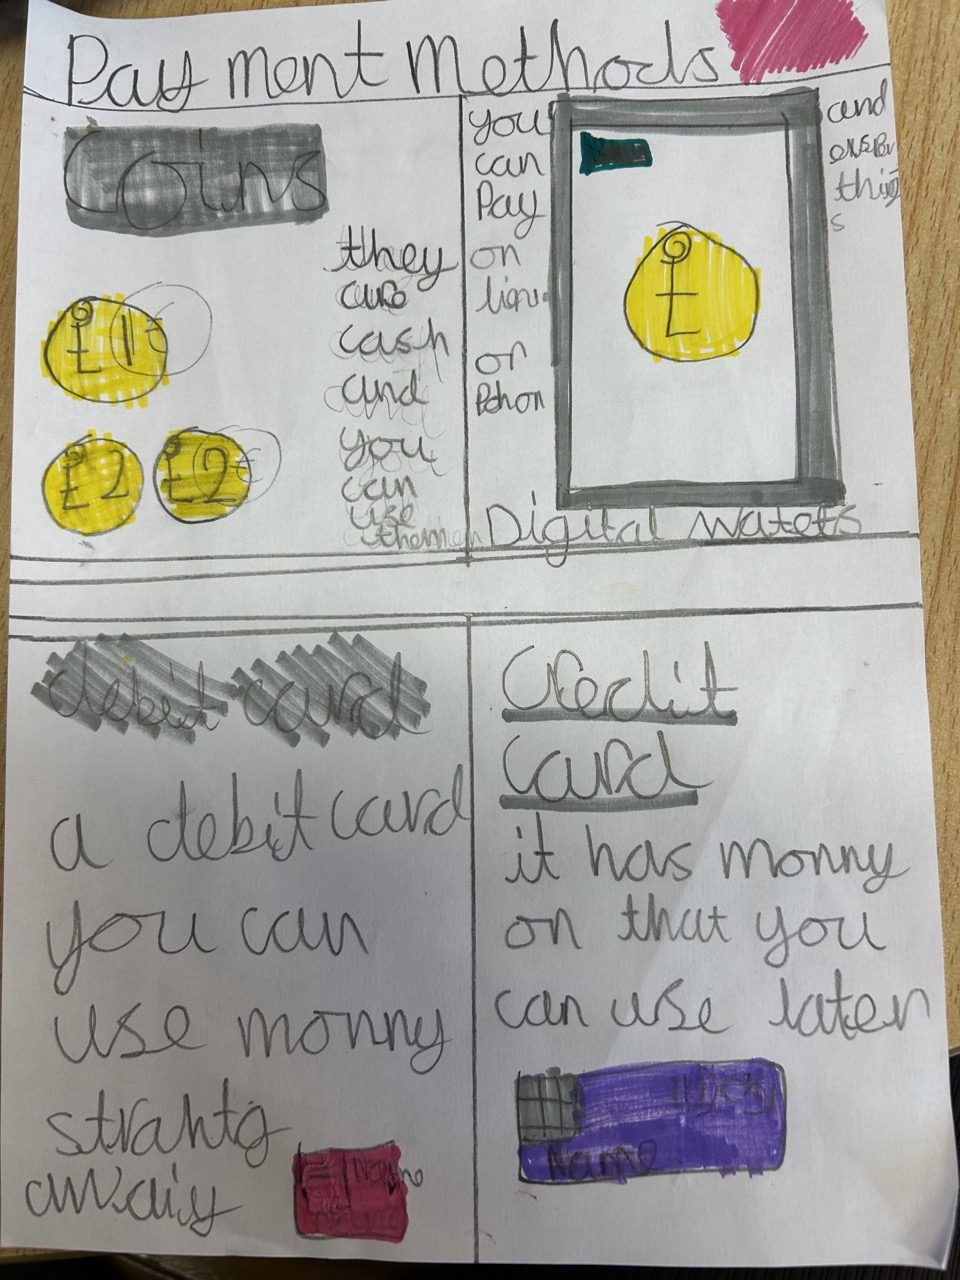 Payment methods
Coins
they
are
cash
and
you
can
use
them
£1
£2 £2
you
can
Pay
on
line
or
Pohon
£
and
things
Digital watets
debit card
a debit card
you can
use monny
strahtg
awaiy
Name
Credit
card
it has monny
on that you
can use later
Name